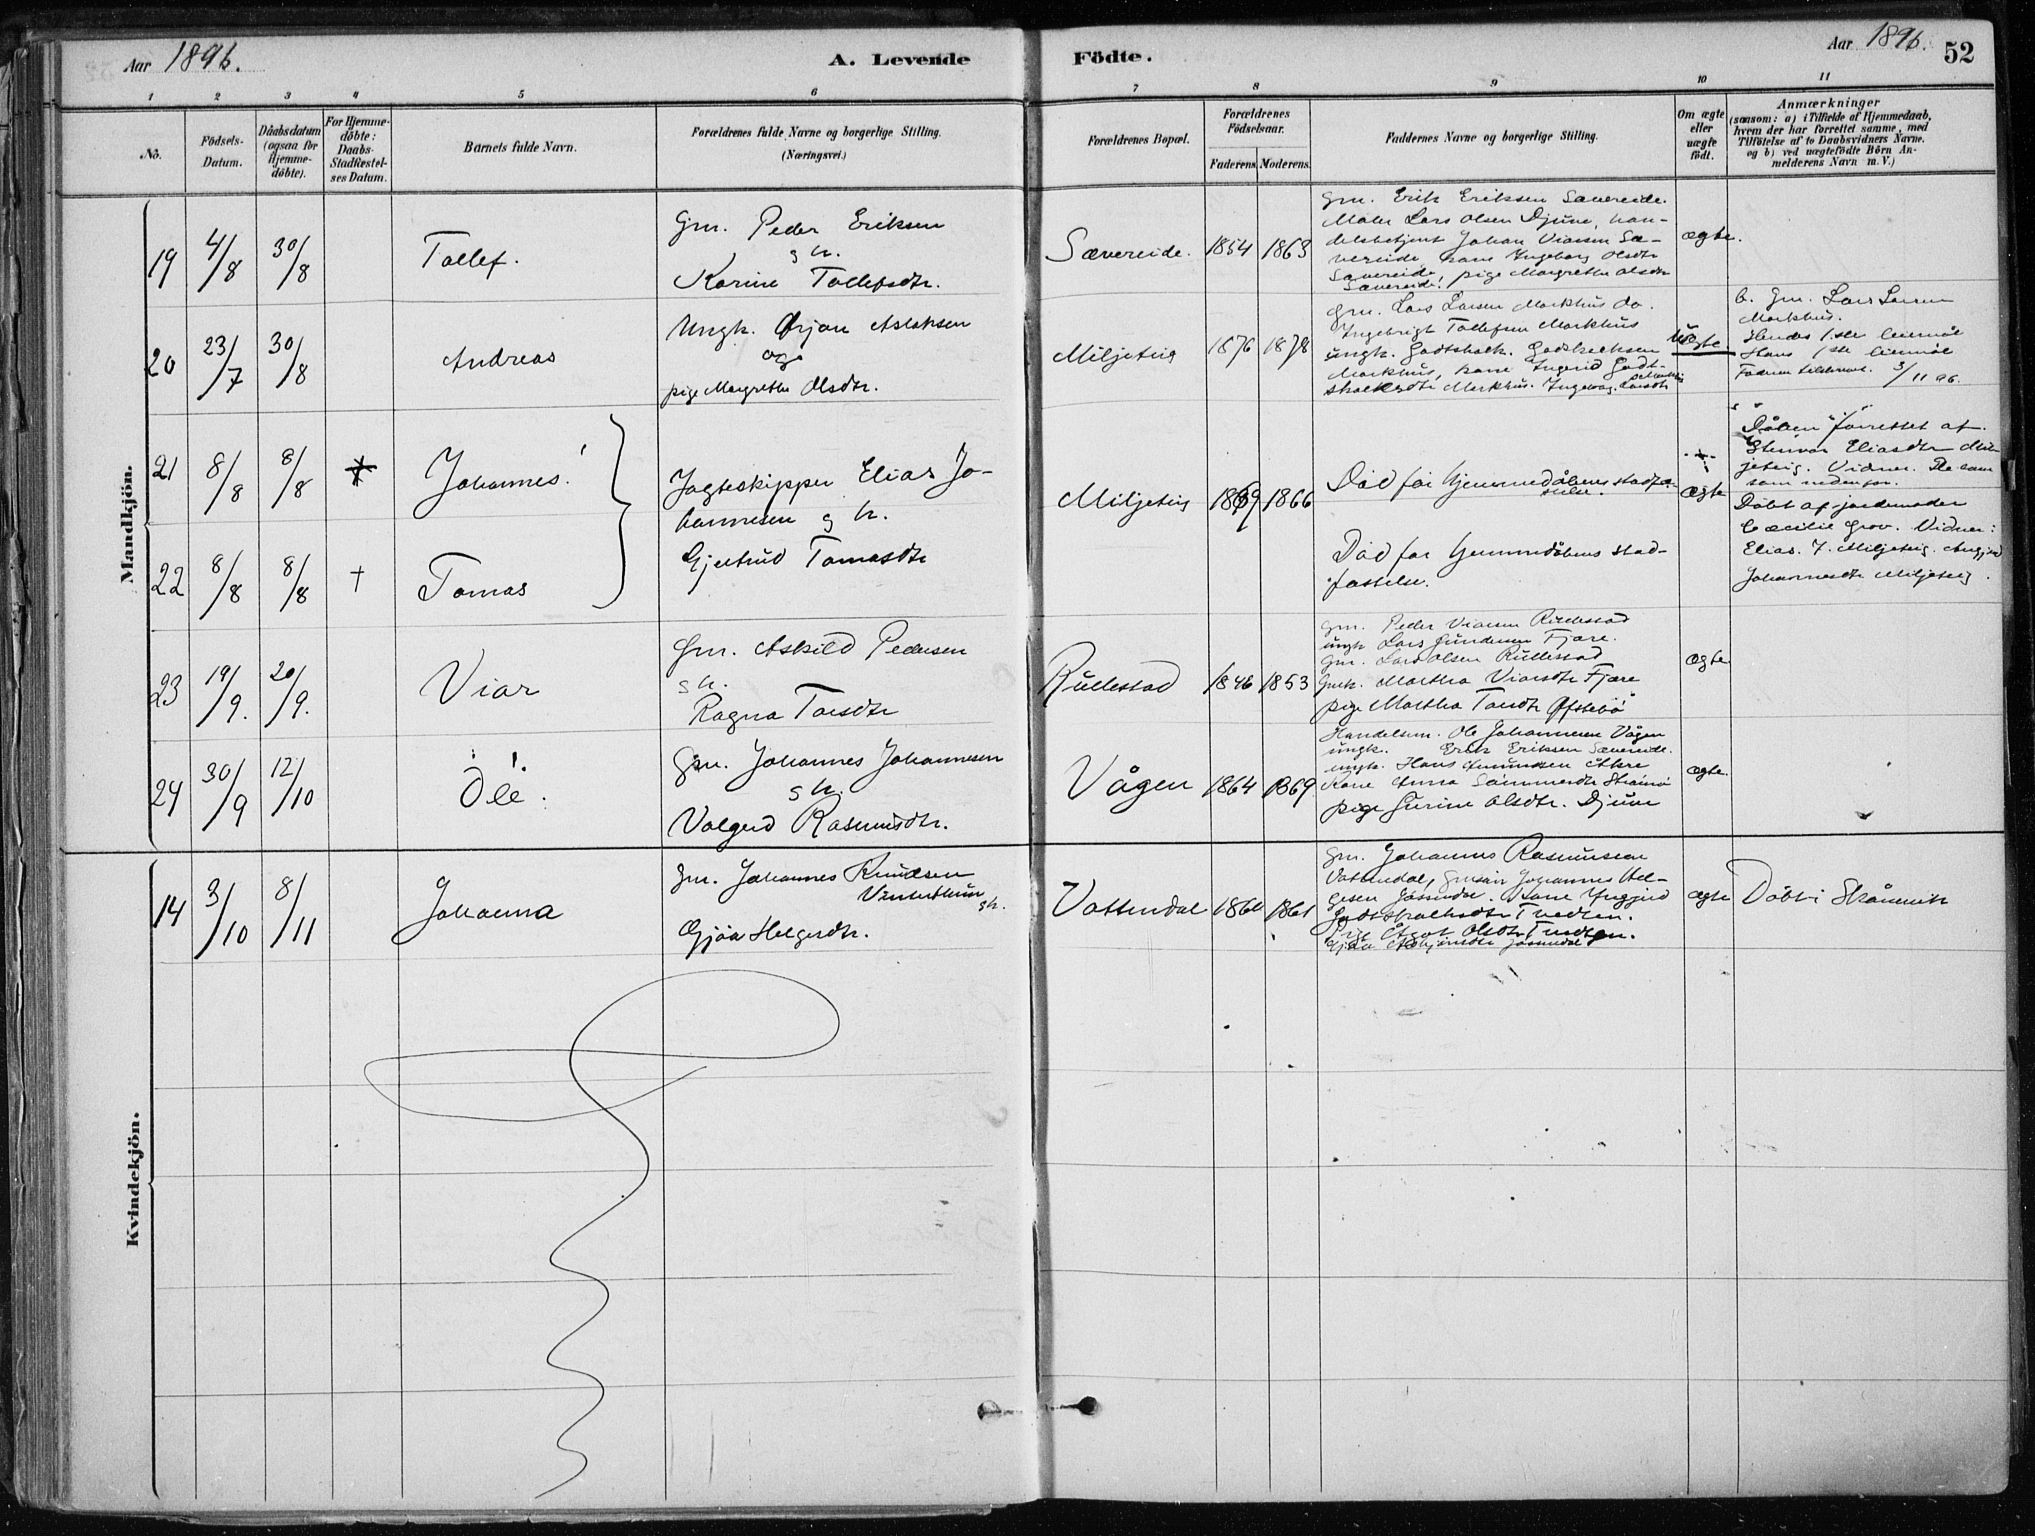 Aar 1896.
A. Levende
Födte.
Aar 1896.
52
1 2 3 4 5 6 7 8 9 10 11
No.
Födsels-
Datum.
Dåabsdatum
(ogsaa for
Hjemme-
döbte).
For Hjemme-
döbte:
Daabs-
Stadfæstel-
ses Datum.
Barnets fulde Navn.
Forældrenes fulde Navne og borgerlige Stilling.
(Næringsvei.)
Forældrenes Bopæl.
Forældrenes
Födselsaar.
Faderens Moderens.
Faddernes Navne og borgerlige Stilling.
Om ægte
eller
uægte
födt.
Anmærkninger
(saasom: a) i Tilfælde af Hjemmedaab,
hvem der har forrettet samme, med
Tilföielse af to Daabsvidners Navne.
og b) ved uægtefödte Börn An-
melderens Navn m. V.)
Mandkjön.
19
4/8
30/8
Tollef.
Gm. Peder Eriksen
g h.
Karine Tollefsdtr.
Sævereide.
1854
1863
Gm. Erik Eriksen Sævereide.
Maler Lars Olsen Djuve, han-
delsbetjent Johan Viarsen Sæ-
vereide, kone Ingeborg Olsdtr
Sævereide, pige Margrethe Olsdtr
Sævereide.
ægte.
20
23/7
30/8
Andreas
Ungk. Ørjan Aslaksen
og
pige Margrethe Olsdtr.
Miljeteig
1876
1878
Gm. Lars Larsen Markhus do.
Ingebrigt Tollefsen Markhus
ungk. Godtskalk. Godskalksen
Markhus, kone Ingerid Godt-
skalksdtr Markhus. Ingeborg Larsdtr
Markhus
Uægte
b. Gm. Lars Larsen
Markhus.
Hendes 1ste leiermål
Hans 1ste leiermål
3/11 96.
21
8/8
8/8
†
Johannes
Jagteskipper Elias Jo-
hannesen g h.
Gjertrud Tomasdtr
Miljeteig
1869
1866
Död før hjemmedåbens stadfæ-
stelse.
ægte
Dåben forrettet af
Steinvor Eliasdtr Mil-
jeteig. Vidner. De sam
som nedenfor.
22
8/8
8/8
†
Tomas
Död før hjemmedåbens stad-
fæstelse.
Döbt af jordemoder
Cæcilie Grov. Vidner:
Elias J. Miljeteig. Angjerd
Johannesdtr Miljeteig.
23
19/9.
20/9.
Viar
Gm. Askild Pedersen
g h.
Ragna Tarsdtr
Rullestad
1846
1853
Gm. Peder Viarsen Rullestad
ungk Lars Gundersen Fjære.
Gm. Lars Olsen Rullestad
Gmk. Martha Viarsdtr Fjære
pige Martha Tarsdtr Øfstebö
ægte
24
30/9
12/10
Ole.
Gm. Johannes Johannesen
g h.
Valgerd Rasmusdtr.
Vågen
1864
1869
Handelsm. Ole Johannesen Vågen
ungk. Erik Eriksen Sævereide.
ungk. Hans Amundsen Akre
Kone Anna
pige Gurine Olsdtr. Djuve
ægte.
Kvindekjön.
14
3/10
8/11
Johanna
Gm. Johannes Knudsen
Vintertun
g h.
Gjöa Helgesdtr.
Vattendal
1860
1861
Gm. Johannes Rasmussen
Vattendal, Gmsön Johannes Hel-
gesen Jösendal. Kone Angjerd
Godtskalksdtr Tvedten.
Pige Ågot Olsdtr Tvedten.
Gjöa Asbjörnsdtr Jösendal
ægte
Döbt i Skånevik